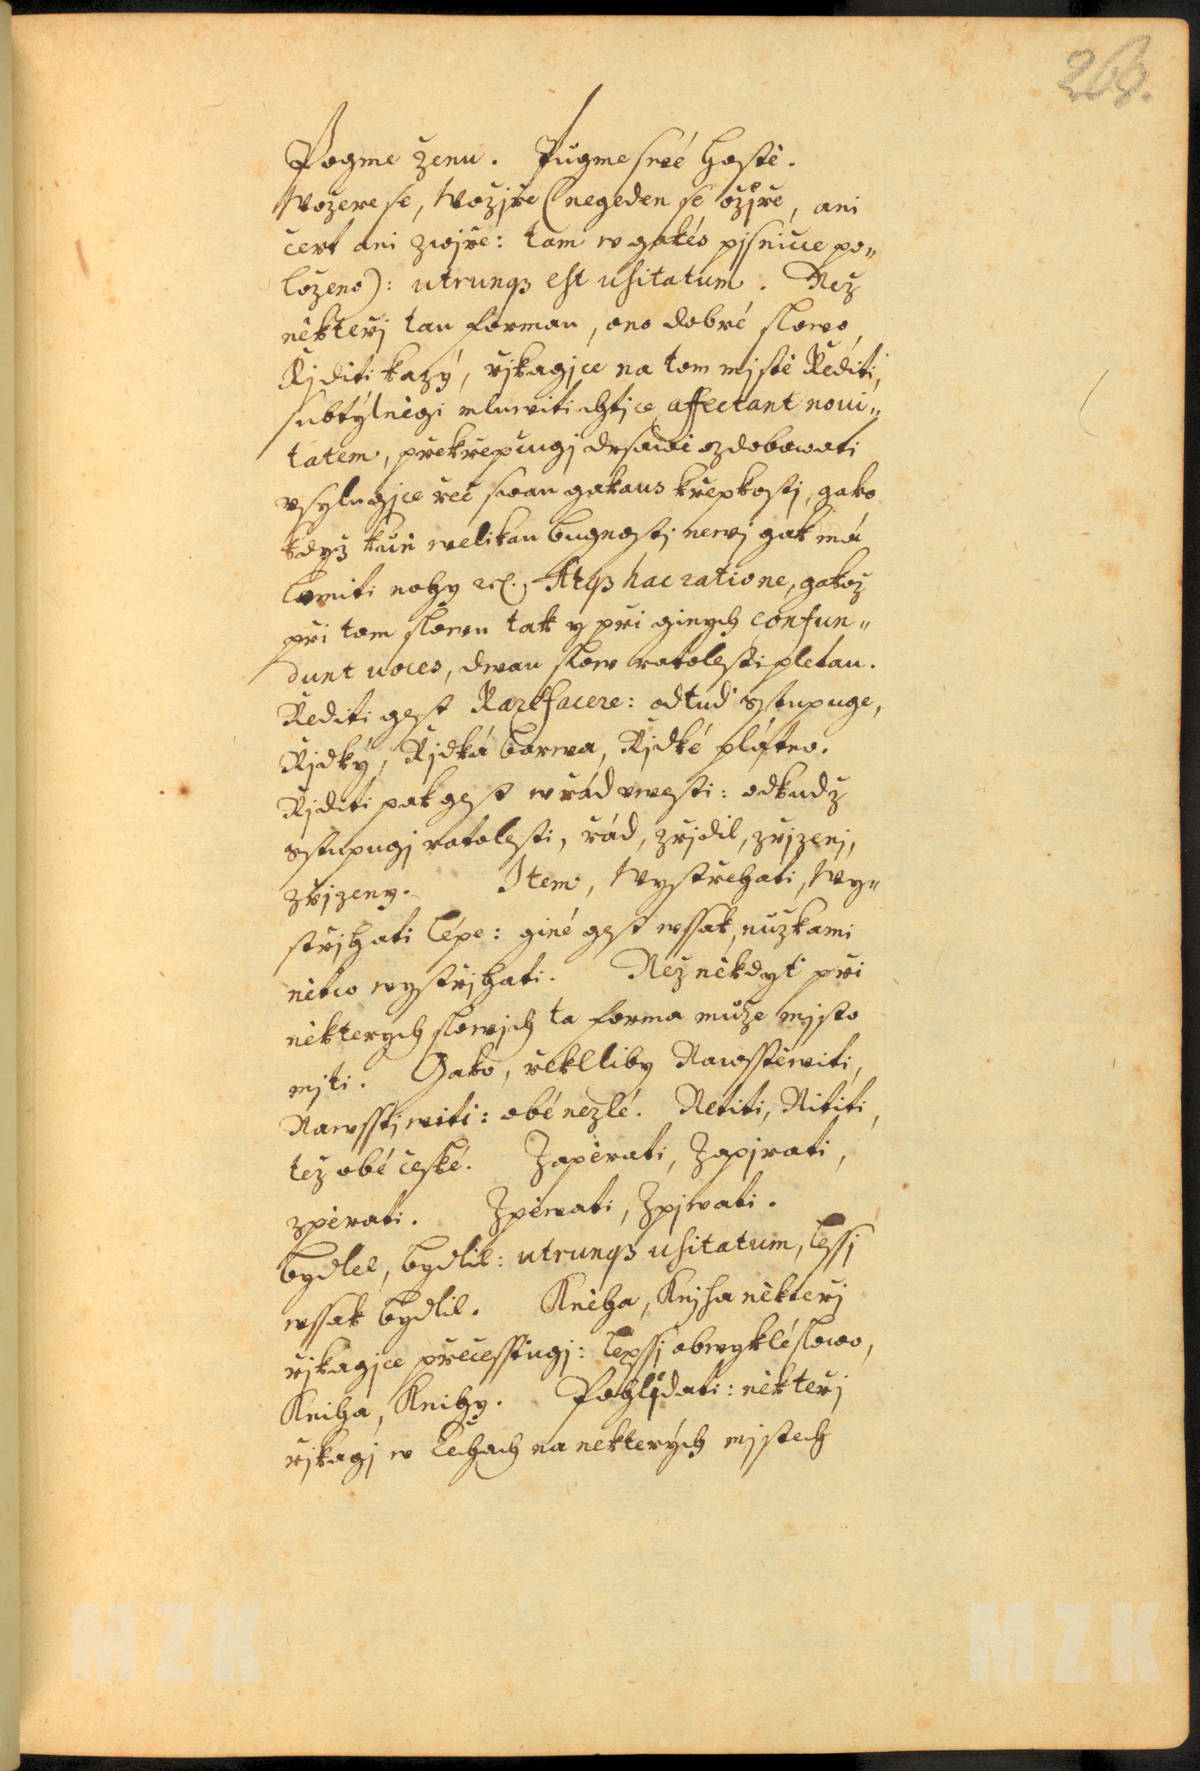 268.
Pogme ženu. Pugme sreé hostě.
Wožere se, Wožjře (negeden se ožjře, ani
čert ani zwjře: tam w gakés pjsnicce po„
loženo): utrunqꝫ est usitatum. Než
někteřj tau formau, ono dobré slowo,
Řjditi kazý, řjkagjce na tom mjstě Ředíti,
subtýlněgi mluwiti chtjce affectant noui„
tatem, překřepčugj drsnau ozdobowati
vsylugjce řeč swau gakaus křepkostj, gako
když kůň welikau bugnostj newj gak má
lomiti nohy ꝛcꝉ. Atqꝫ hac ratione, gakož
při tom slowu tak y při giných confun„
dunt uoces, dwau slow ratolesti pletau.
Řediti gest Rarefacere: odtud sstupuge,
Řjdký, Řjdká barwa, Řjdké plátno.
Řjditi pak gest w řád vwesti: odkudž
sstupugj ratolesti, řád, zřjdil, zřjzenj,
zřjzeny. Item, Wystřehati, Wy„
střjhati lépe: giné gest wssak, nůžkami
něco wystřjhati. Než někdyť při
některých slowjch ta forma může mjsto
mjti. Gako, řeklliby Nawsstěwiti,
Nawsstjwiti: obé nezlé. Nětiti, Nititi,
též obé české. Zapěrati, Zapjrati,
zpěrati. Zpěwati, Zpjwati.
bydlel, bydlil: utrunqꝫ usitatum, lepssj
wssak bydlil. Kněha, Knjha někteřj
řjkagjce přecessťugj: lepssj obwyklé slowo,
Kniha, Knihy. Pohljdati: někteřj
řjkagj w Čechach na některých mjstech
MZK
MZK